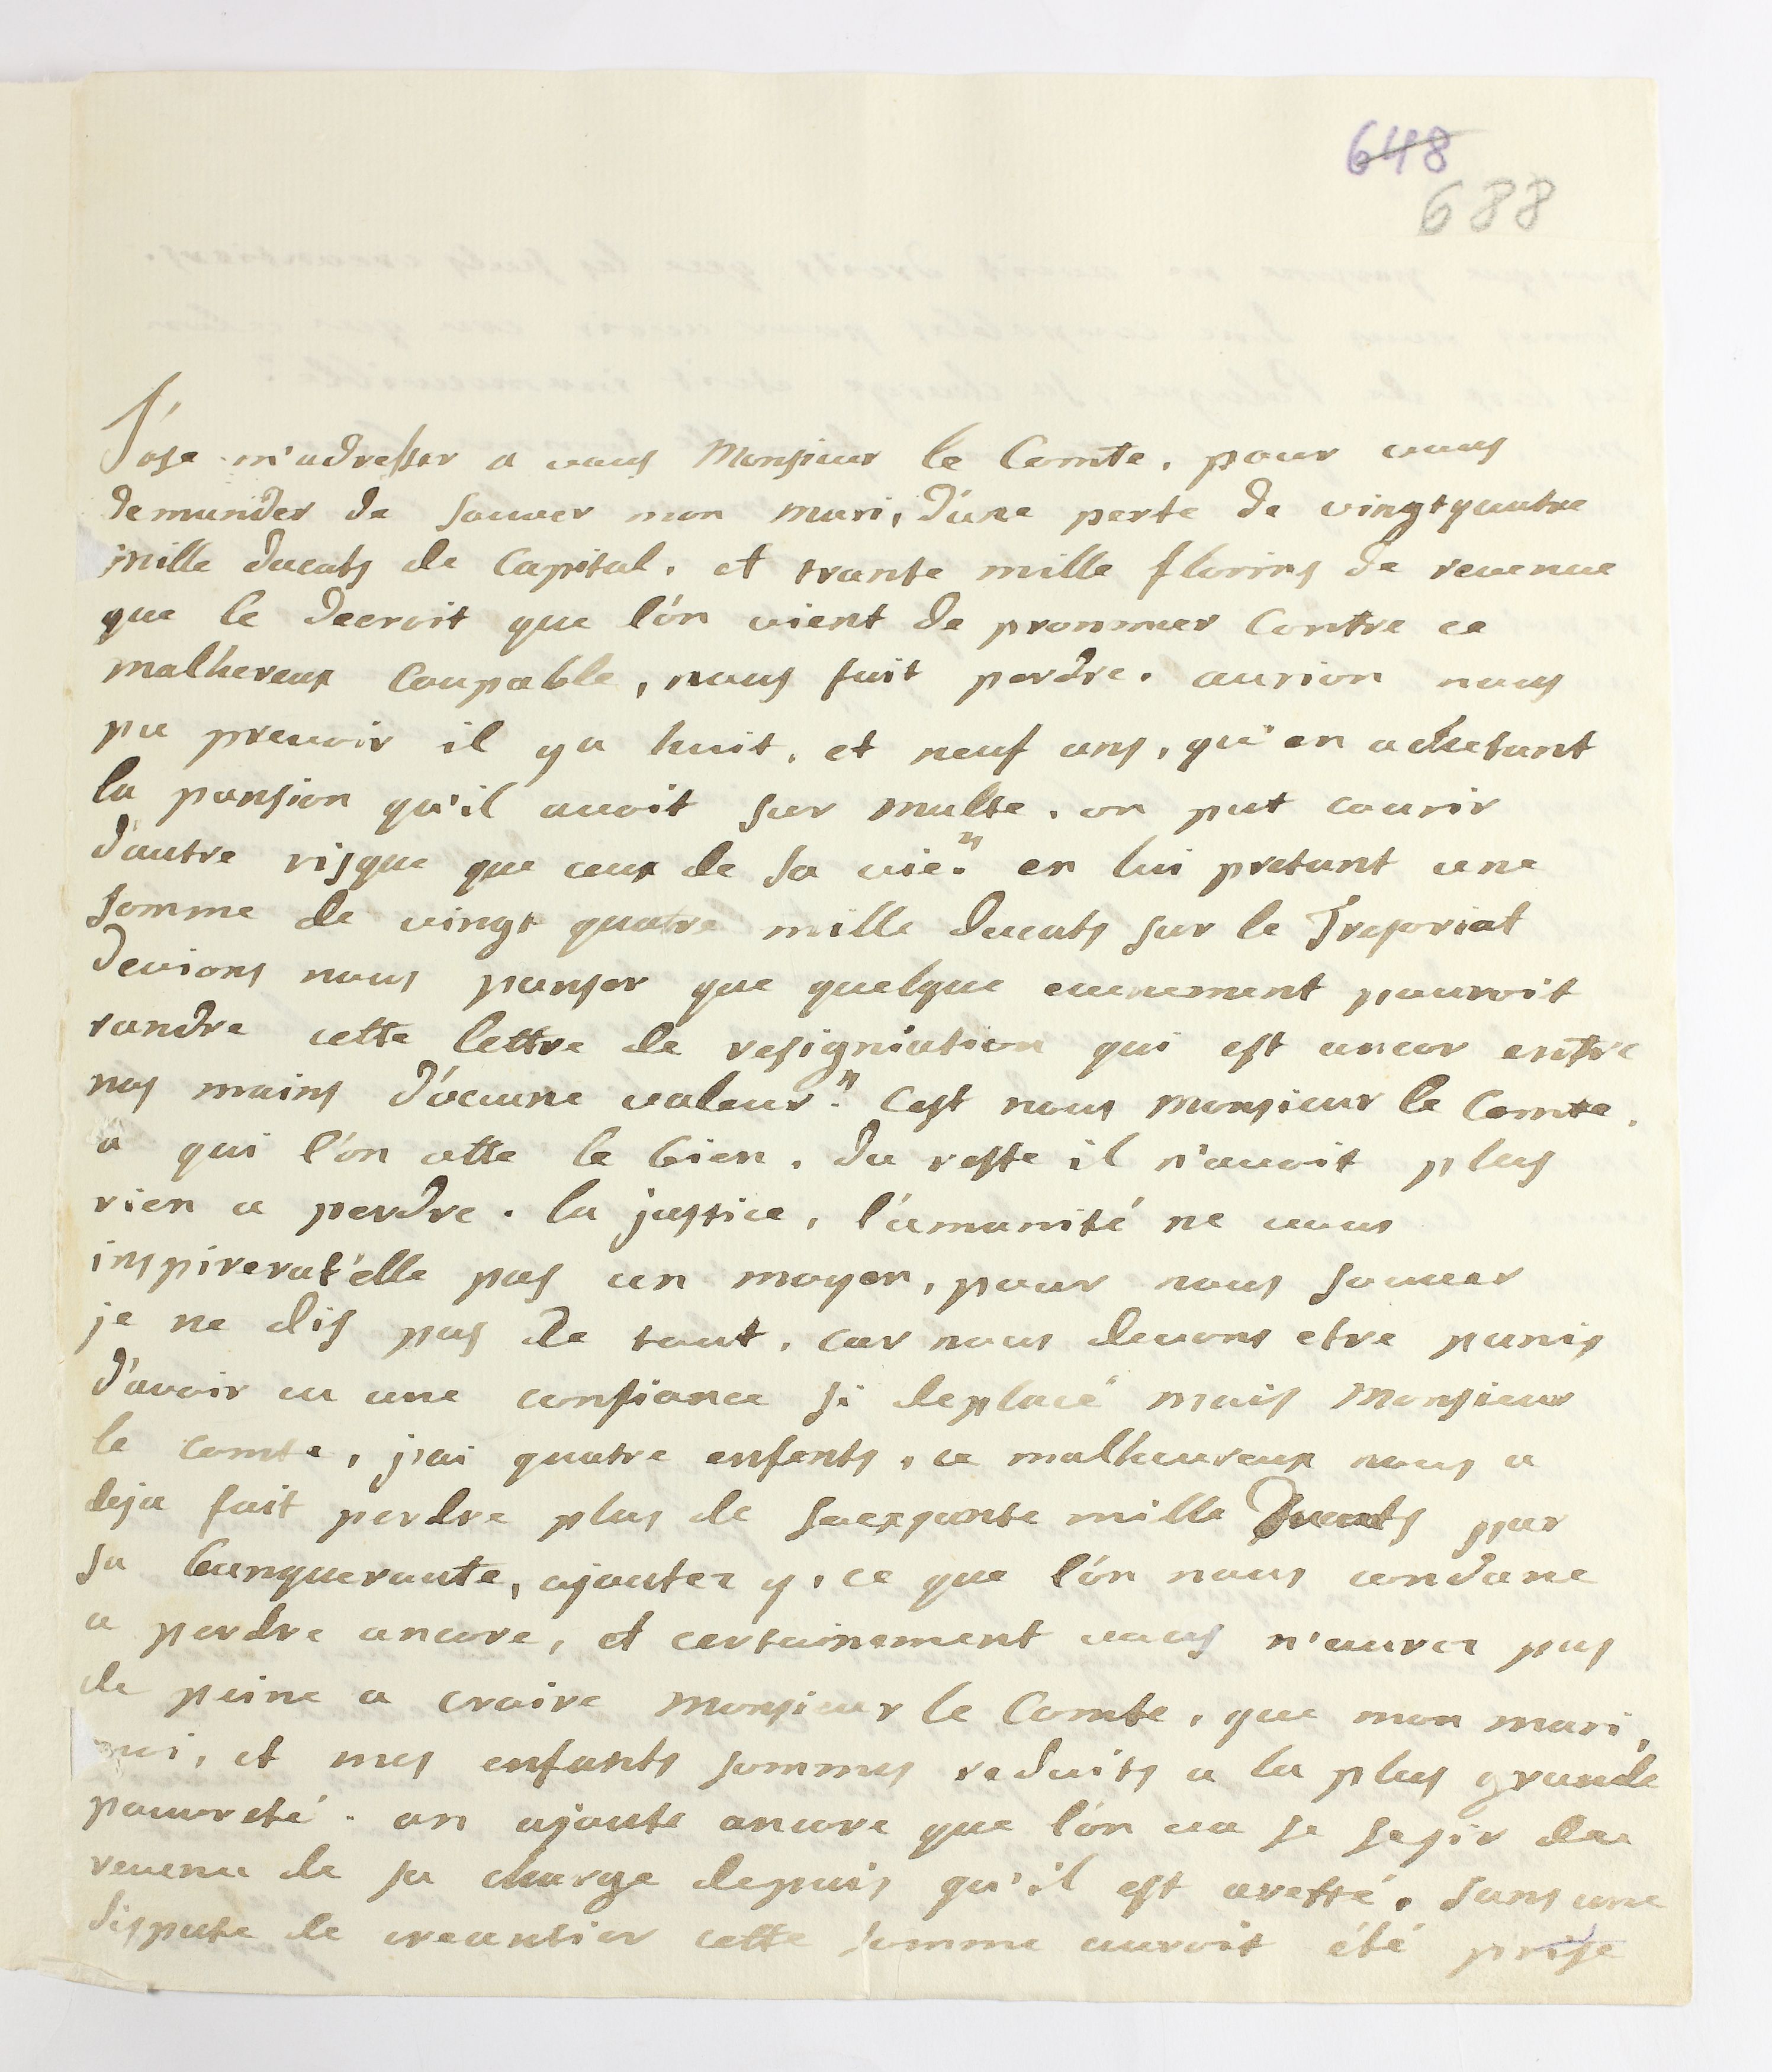 648
688
J'ose m'adresser a vous Monsieur le Comte, pour vous
demander de sauver mon mari, d'une perte de vingtquatre
mille ducats de Capital, et trante mille florins de revenue
que le decroit que l'on vient de prononcer Contre ce
malhereux Coupable, nous fait perdre. aurion nous
pu prevoir il ya huit, et neuf ans, qu'en achetant
la pansion qu'il avoit sur malte, on put courir
d'autre risque que ceux de sa vie." en lui pretant une
somme de vingt quatre mille ducats sur le Tresoriat
devions nous panser que quelque evenement pouroit
randre cette lettre de resigniation qui est ancor entre
nos mains d'ocune valeur." C'est nous Monsieur le Comte,
a qui l'on otte le bien, du reste il n'avoit plus
rien a perdre. la justice, l'umanité ne vous
inspirerat'elle pas un moyen, pour nous sauver
je ne dis pas de tout, car nous devons etre punis
d'avoir eu une confiance si deplacé mais Monsieur
le comte, j'ai quatre enfents, ce malheureux nous a
deja fait perdre plus de soexsante mille Ducats par
sa banqueroute, ajoutez y, ce que l'on nous condane
a perdre ancore, et certainement vous n'aurez pas
de peine a croire Monsieur le Comte, que mon mari,
moi, et mes enfants sommes reduits a la plus grande
pauvreté. on ajoute ancore que l'on va se sesir du
revenu de sa charge depuis qu'il est aretté, sans une
dispute de creantier cette somme auroit été prise